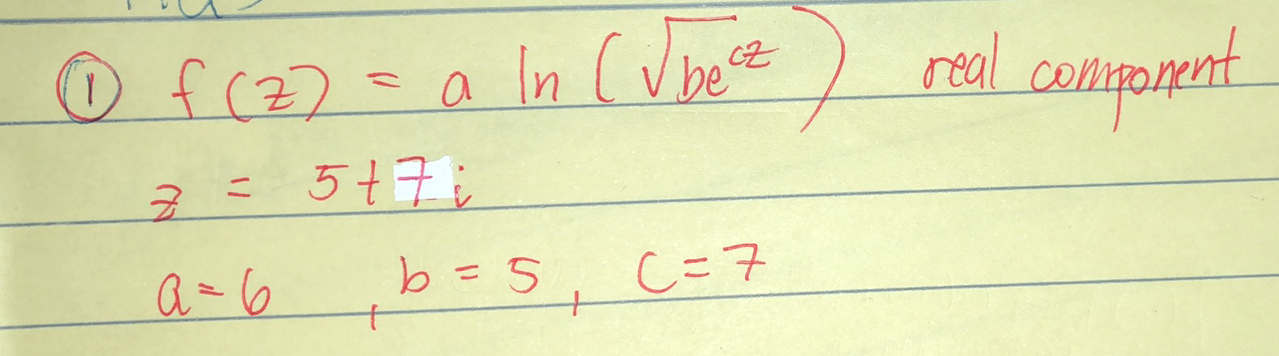 ① f(z) = a ln(√be^cz) real component
z = 5+7i
a=6, b=5, c=7